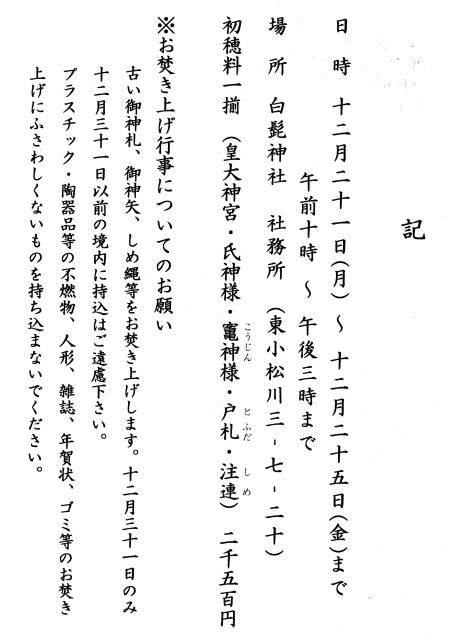 記
日　時　十二月二十一日(月)　～　十二月二十五日(金)まで
午前十時　～　午後三時まで
場　所　白髭神社　社務所　(東小松川三-七-二十)
初穂料一揃　(皇大神宮・氏神様・竈神様・戸札・注連)　二千五百円
こうじん　とふだ　しめ
※お焚き上げ行事についてのお願い
古い御神札、御神矢、しめ縄等をお焚き上げします。十二月三十一日のみ
十二月三十一日以前の境内に持込はご遠慮下さい。
プラスチック・陶器品等の不燃物、人形、雑誌、年賀状、ゴミ等のお焚き
上げにふさわしくないものを持ち込まないでください。